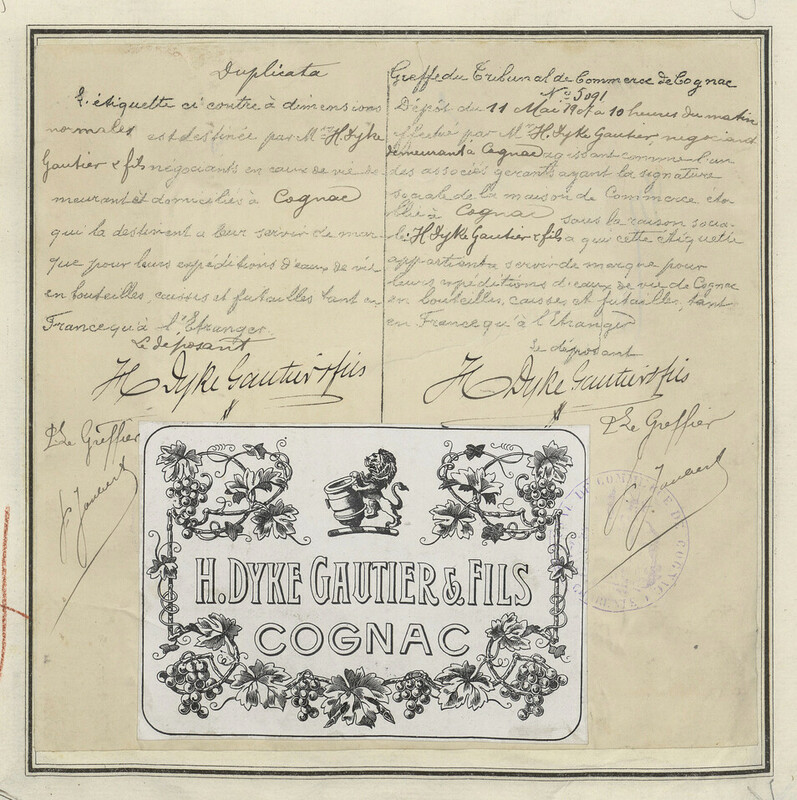 Duplicata
L'étiquette ci contre à dimensions
normales est destinée par Mrs H. Dyke
Gautier & fils négociants en eaux de vie de-
meurant et domiciliés à Cognac
qui la destinent a leur servir de mar-
que pour leurs expéditions d'eaux de vie
en bouteilles, caisses et futailles tant en
France qu'à l'Etranger.
Le déposant
H Dyke Gautier & fils
Pr Le Greffier
Greffe du Tribunal de Commerce de Cognac
No 5091
Dépôt du 11 Mai 1907 a 10 heures du matin
effectué par Mr H. Dyke Gautier, négociant
demeurant à Cognac agissant comme l'un
des associés gérants ayant la signature
sociale de la maison de Commerce éta-
blie à Cognac sous la raison socia-
le H Dyke Gautier & fils a qui cette étiquette
appartient a servir de marque pour
leurs expéditions d'eaux de vie de Cognac
en bouteilles, caisses et futailles, tant
en France qu'à l'Etranger
Le déposant
H Dyke Gautier & fils
Pr Le Greffier
H. DYKE GAUTIER & FILS
COGNAC